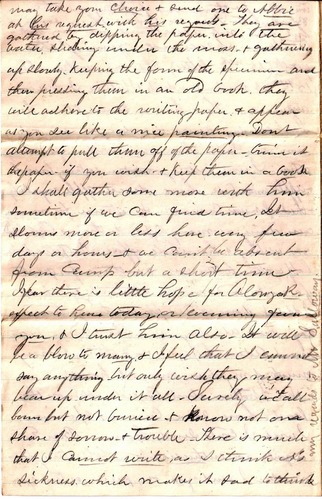 may take your choice & send one to Abbie
at his request, with his regards - They are
gathered by dipping the paper into the
water, stirring under the moss & gathering
up slowly, keeping the form of the specimen and
then pressing them in an old book, they
will adhere to the writing paper, & appear
as you see like a nice painting. Dont
attempt to pull them off of the paper - trim
the paper if you wish & keep them in a book
I shall gather some more with him
sometime if we can find time, It
storms more or less here every few
days or hours & we can't be absent
from Camp but a short time
I fear there is little hope for Alonzo &
expect to hear today, or evening from
you, & I trust him also - It will
be a blow to many, & I feel that I cannot
say anything, but only wish they may
bear up under it all - Surely is all
born but not buried & know not our
share of sorrow & trouble - There is much
that I cannot write, as I think its
sickness, which makes it sad to think
my regards to